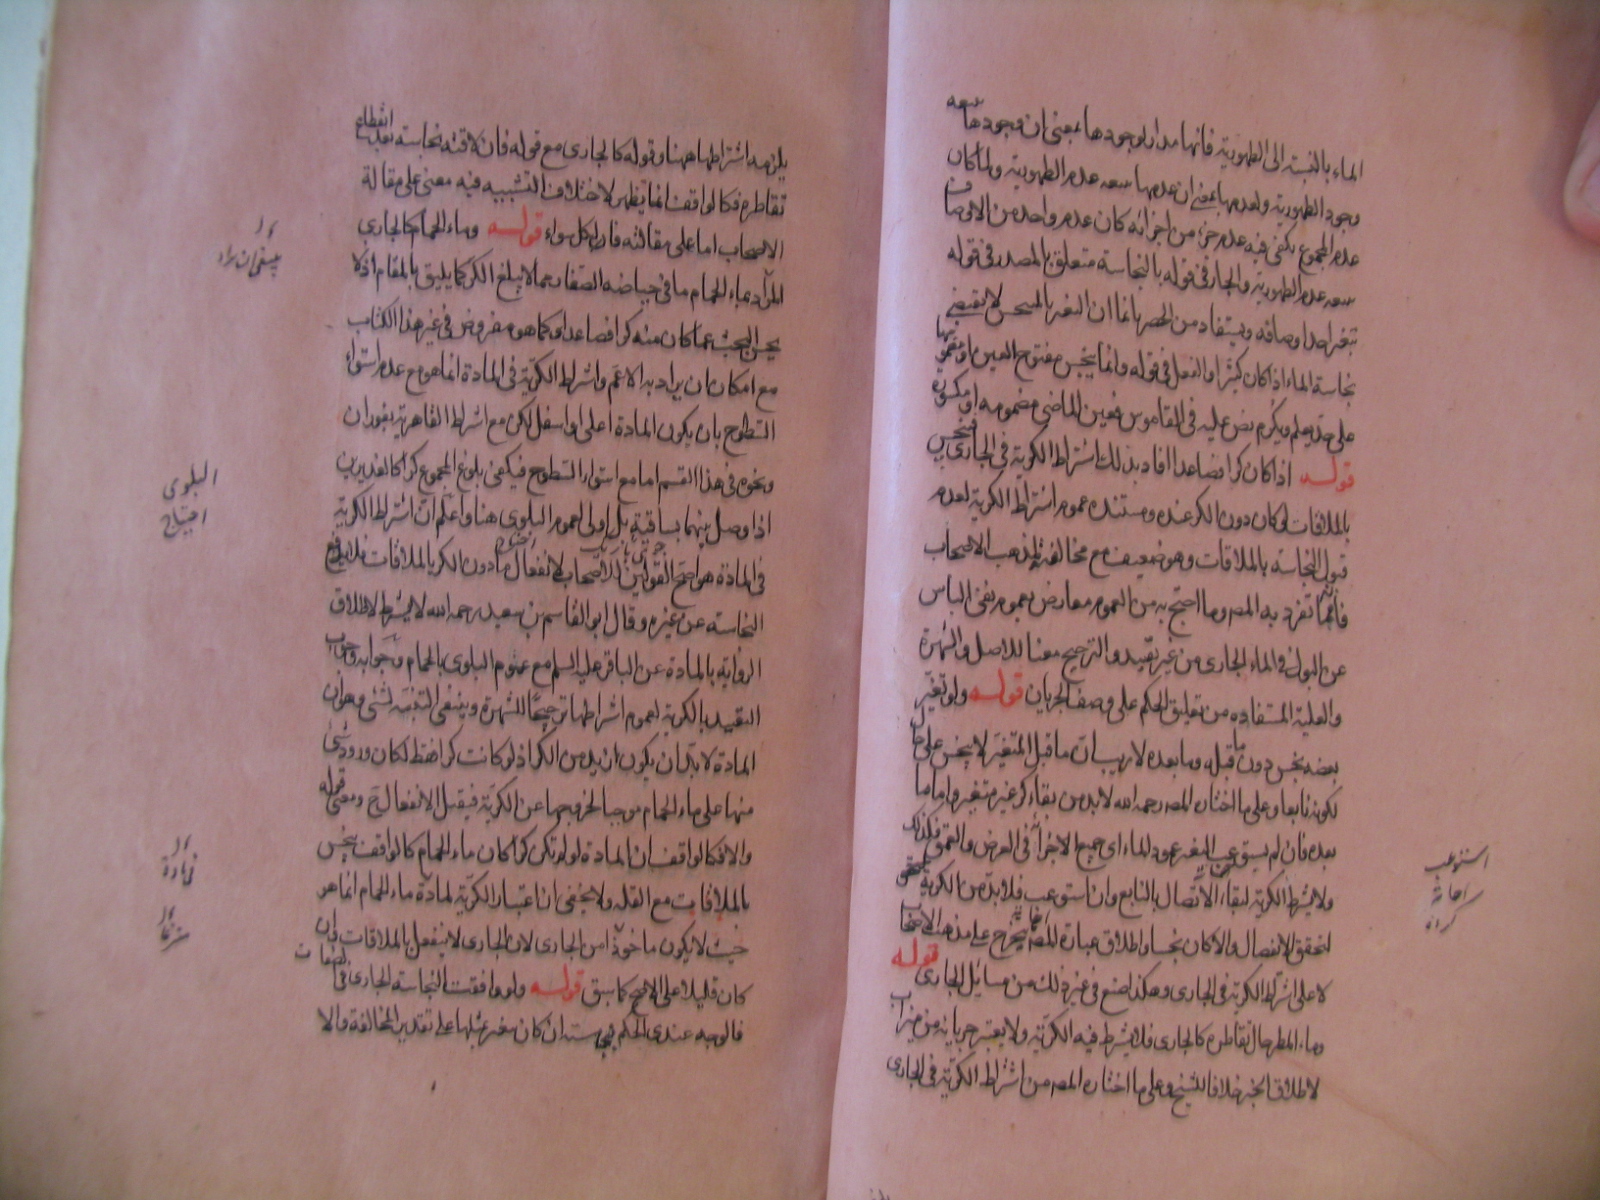 الماء بالنسبة الى الطهورية فانها مدار لوجودها بمعنى ان وجودها معه
وجود الطهورية ولعدمها بمعنى ان عدمها معه عدم الطهورية ولما كان
عدم المجموع يكفى فيه عدم جزء من اجزائه كان عدم واحد من الاوصاف
معه عدم الطهورية والجار فى قوله بالنجاسة متعلق بالمصدر فى قوله
تغير احد اوصافه ويستفاد من الحصر بانما ان التغير بالمتنجس لا يقتضى
نجاسة الماء اذا كان كثيرا والفعل فى قوله وانما ينجس مفتوح العين او مضمومها
على حد يعلم ويكرم نص عليه فى القاموس فعين الماضى مضمومه او مكسورة
قوله اذا كان كرا فصاعدا افاد بذلك اشتراط الكرية فى الجارى فينجس
بالملاقات لو كان دون الكر عنده ومستنده عموم اشتراط الكرية لعدم
قبول النجاسة بالملاقات وهو ضعيف مع مخالفته لمذهب الاصحاب
فانه مما تفرد به المص وما احتج به من العموم معارض بعموم نفى الباس
عن البول فى الماء الجارى من غير تقييد والترجيح معنا للاصل والشهرة
والعلية المستفاده من تعليق الحكم على وصف الجريان قوله ولو تغير
بعضه نجس دون ما قبله وما بعده لا ريب ان ما قبل المتغير لا ينجس على حال
لكونه نابعا وعلى ما اختاره المص رحمه الله لابد من بقاء كر غير متغير واما ما
بعده فان لم يستوعب التغير عمود الماء اى جميع الاجزاء فى العرض والعمق فكذلك
ولا يشترط الكرية لبقاء الاتصال بالنابع وان استوعب فلابد من الكرية
لتحقق الانفصال والا كان نجسا واطلاق عبارة المص انما يتخرج على مذهب الاصحاب
لا على اشتراط الكرية فى الجارى وهكذا صنع فى غير ذلك من مسائل الجارى قوله
وماء المطر حال تقاطره كالجارى فلا يشترط فيه الكرية ولا يعتبر جريانه من ميزاب
لاطلاق الخبر خلافا للشيخ وعلى ما اختاره المص من اشتراط الكرية فى الجارى
استوعب
احاطه
كردن
يلزمه اشتراطها هيهنا وقوله كالجارى مع قوله فان لاقته نجاسة بعد انقطاع
تقاطره فكالواقف انما يظهر لاختلاف التشبيه فيه معنى على مقالة
الاصحاب اما على مقالته فالكل سواء قوله وماء الحمام كالجارى
المراد بماء الحمام ما فى حياضه الصغار مما لا يبلغ الكر كما يليق بالمقام اذ لا
يحسن البحث عما كان منه كرا فصاعدا وكما هو مفروض فى غير هذا الكتاب
مع امكان ان يراد به الاعم واشتراط الكرية فى المادة انما هو مع عدم استواء
السطوح بان يكون المادة اعلى او اسفل لكن مع اشتراط القاهرية بفوران
ونحوه فى هذا القسم اما مع استواء السطوح فيكفى بلوغ المجموع كرا كالغديرين
اذا وصل بينهما بساقية بل اولى لعموم البلوى هنا واعلم ان اشتراط الكرية
فى المادة هو اصح القولين للاصحاب لانفعال ما دون الكر بالملاقات فلا يدفع
النجاسة عن غيره وقال ابو القاسم بن سعيد رحمه الله لا يشترط لاطلاق
الرواية بالمادة عن الباقر عليه السلم مع عموم البلوى بالحمام وجوابه وجوب
التقييد بالكرية لعموم اشتراطها ترجيحا للشهرة وينبغى التنبه لشئ وهو ان
المادة لابد ان يكون ازيد من الكر اذ لو كانت كرا فقط لكان ورود شئ
منها على ماء الحمام موجبا لخروجها عن الكرية فيقبل الانفعال ح ومعنى قوله
والا فكالواقف ان المادة لو لم تكن كرا كان ماء الحمام كالواقف ينجس
بالملاقات مع القلة ولا يخفى ان اعتبار الكرية لمادة ماء الحمام انما هو
حيث لا يكون ماخوذا من الجارى لان الجارى لا ينفعل بالملاقات وان
كان قليلا على الاصح كما سبق قوله ولو وافقت النجاسة الجارى فى الصفات
فالوجه عندى الحكم بنجاسته ان كان يتغير بمثلها على تقدير المخالفة والا
البلوى
احتياج